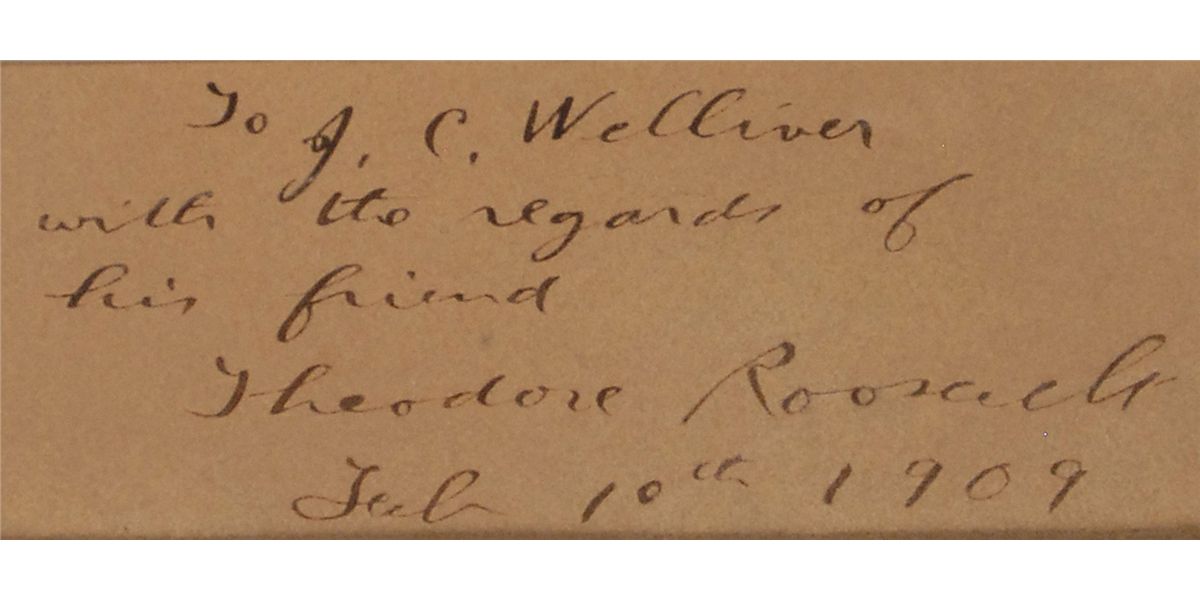 To J. C. Welliver
with the regards of
his friend
Theodore Roosevelt
Feb 10th 1909